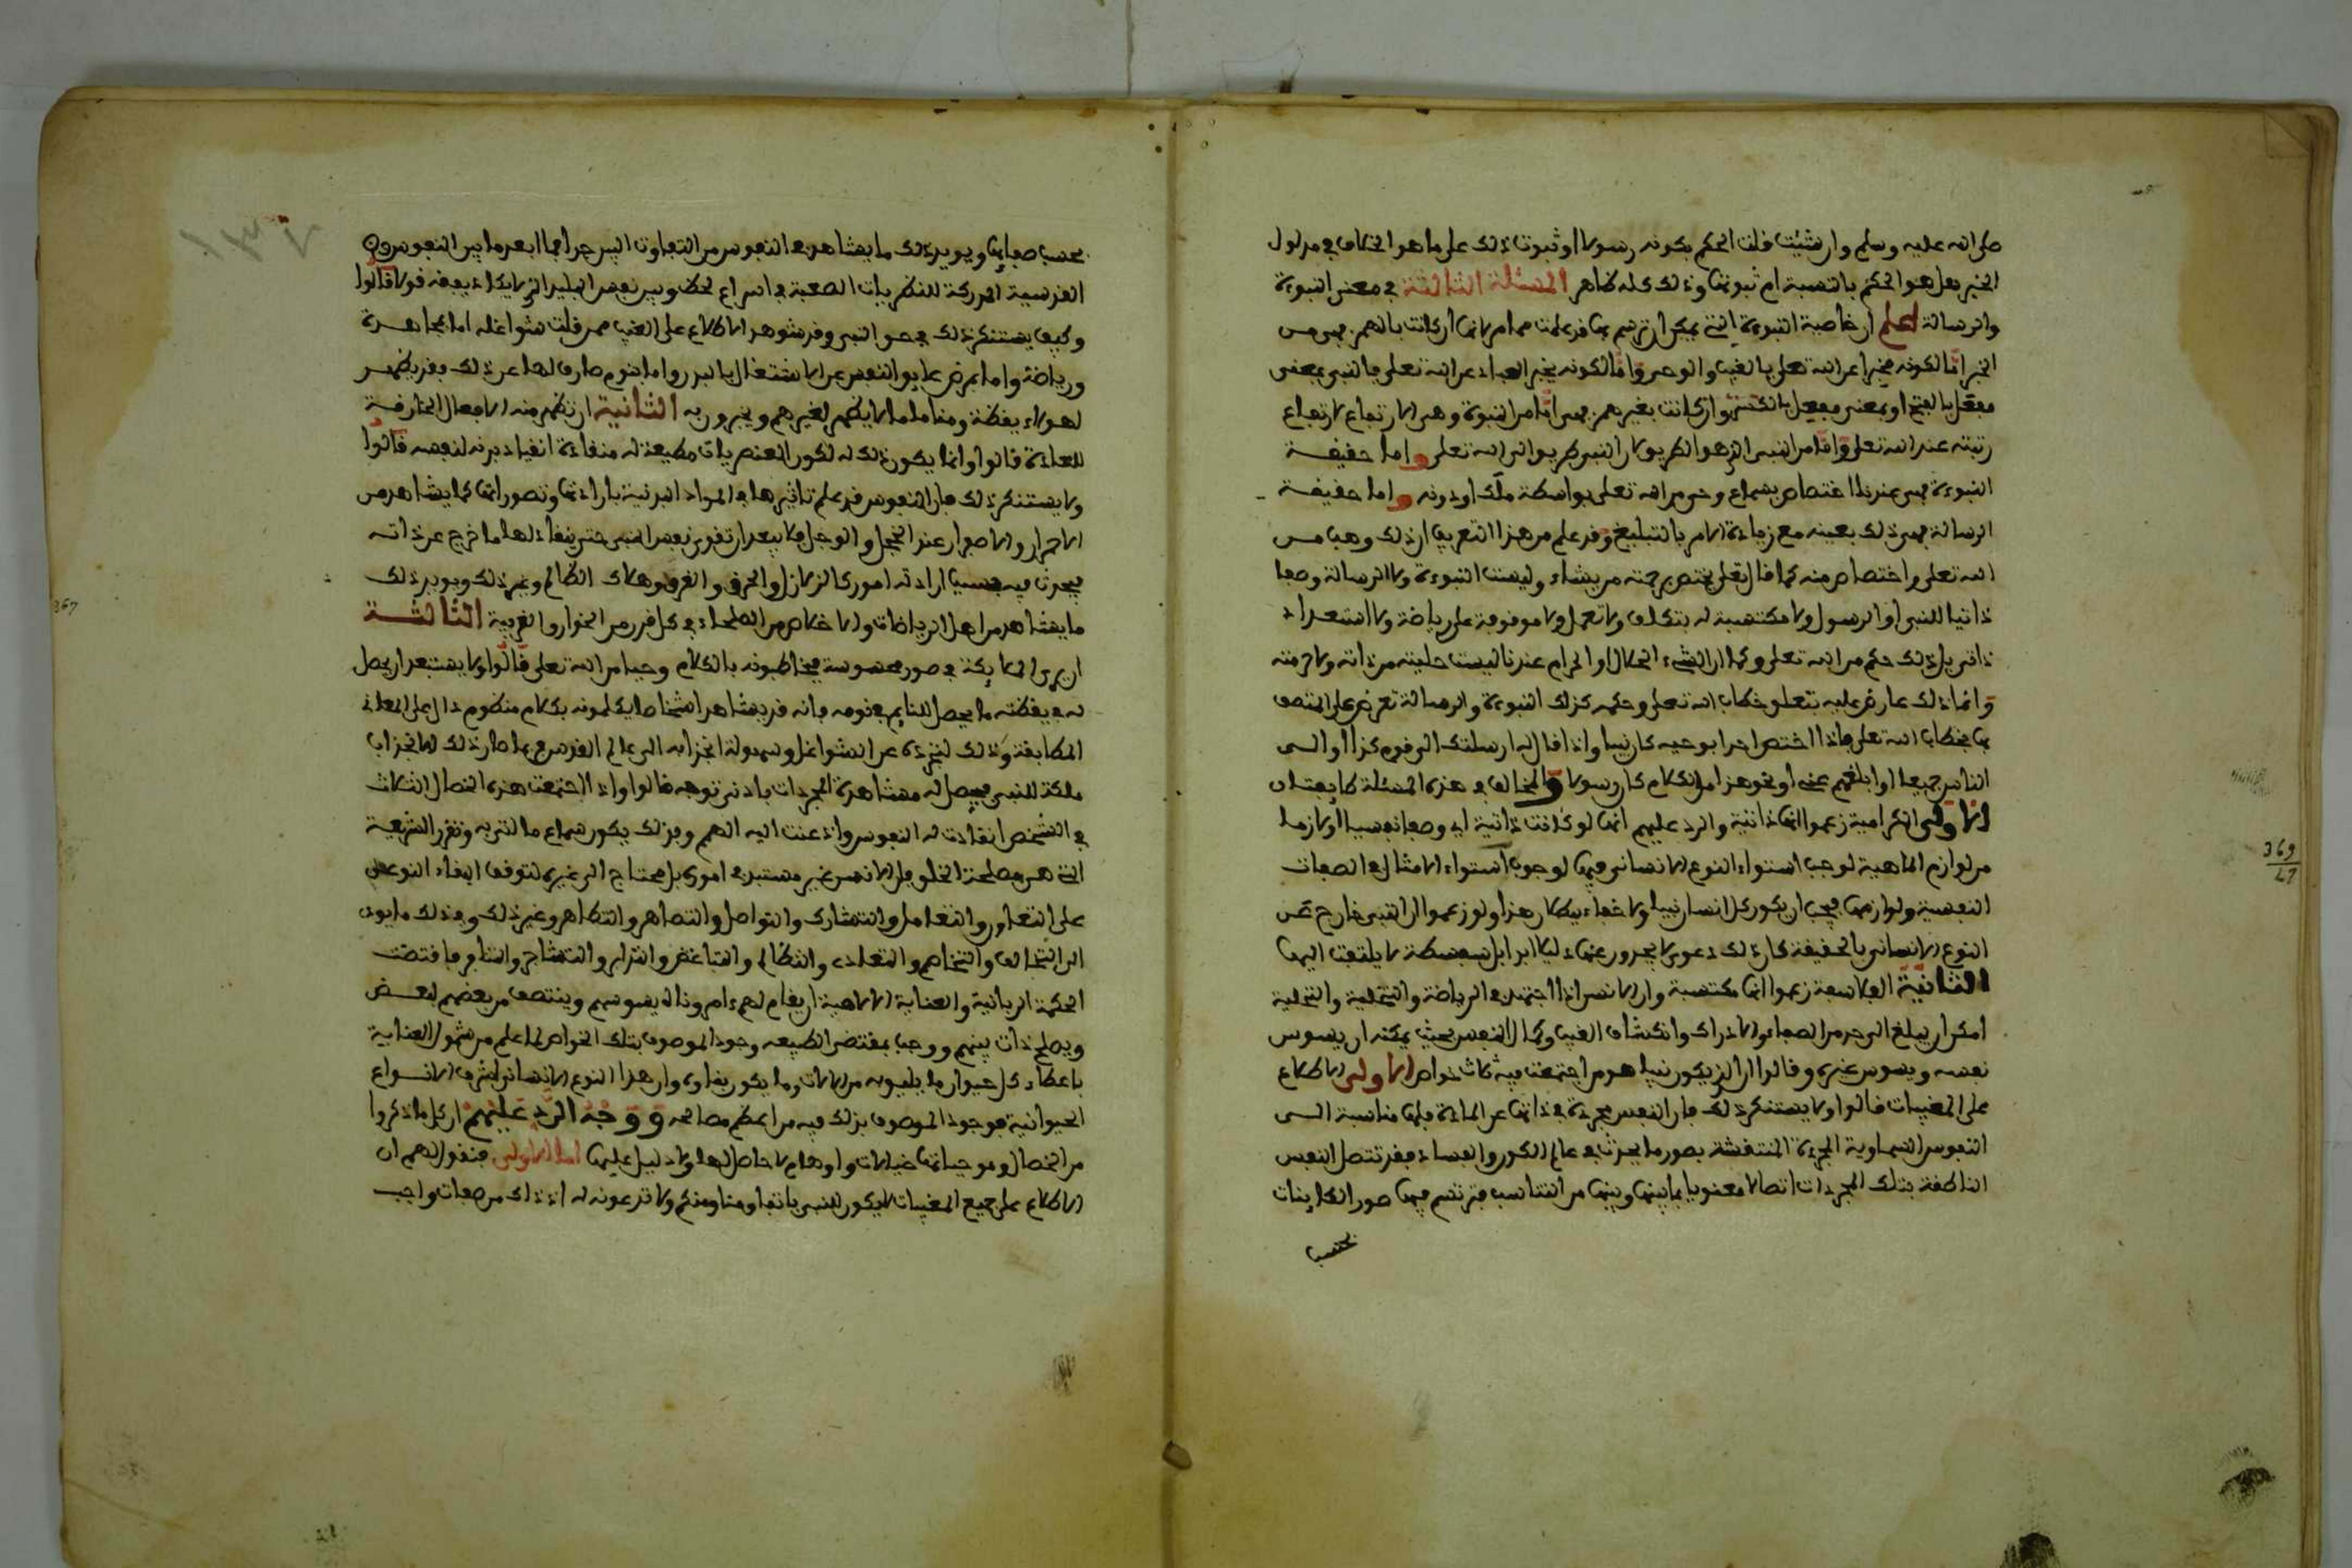 صلى الله عليه وسلم وان شئت قلت الحكم بكونه رسولا او ثبوت ذلك على ما هو الخلاف في مدلول
الخبر هل هو الحكم بالنسبة ام ثبوتها وذلك كله ظاهر المسئلة الثالثة في معنى النبوءة
والرسالة اعلم ان خاصية النبوءة التي يمكن ان ترسم بها قد علمت مما مر لانها ان كانت بالهمز فهي من
الخبر اما لكونه مخبرا عن الله تعلى بالغيب والوحي واما لكونه يخبر العباد عن الله تعلى فالنبي بمعنى
مفعل بالفتح او بمعنى مفعل بالكسر وان كانت بغير همز فهي اما من النبوة وهي الارتفاع لارتفاع
رتبته عند الله تعلى واما من النبي الذي هو الطريق لان النبي طريق الى الله تعلى واما حقيقة
النبوءة فهي عندنا اختصاص بسماع وحي من الله تعلى بواسطة ملك او دونه واما حقيقة
الرسالة فهي ذلك بعينه مع زيادة الامر بالتبليغ وقد علم من هذا التعريف ان ذلك وهب من
الله تعلى واختصاص منه كما قال تعلى يختص برحمته من يشاء وليست النبوءة ولا الرسالة وصفا
ذاتيا للنبي او الرسول ولا مكتسبة له بتكلف ولا تعمل ولا موقوفة على رياضة ولا استعداد
ذاتي بل ذلك حكم من الله تعلى وكما ان الشيء الحلال او الحرام عندنا ليست حليته من ذاته ولا حرمته
وانما ذلك عارض عليه بتعلق خطاب الله تعلى وحكمه كذلك النبوءة والرسالة تعرض على المتصف
بها بخطاب الله تعلى فاذا اختص احدا بوحيه كان نبيا واذا قال له ارسلتك الى قوم كذا او الى
الناس جميعا او ابلغهم عني او نحو هذا من الكلام كان رسولا والمخالف في هذه المسئلة طائفتان
الاولى الكرامية زعموا انها ذاتية والرد عليهم انها لو كانت ذاتية اي وصفا نفسيا او لازما
من لوازم الماهية لوجب استواء النوع الانساني فيها لوجوب استواء الامثال في الصفات
النفسية ولوازمها فيجب ان يكون كل انسان نبيا ولا خفاء ببطلان هذا ولو زعموا ان النبي خارج عن
النوع الانساني بالحقيقة كان ذلك دعوى لا يجدون عنها دليلا ابدا بل سفسطة لا يلتفت اليها
الثانية الفلاسفة زعموا انها مكتسبة وان الانسان اذا اجتهد في الرياضة والتخلية والتحلية
امكن ان يبلغ الى حد من الصفاء والادراك وانكشاف الغيب وكمال النفس بحيث يمكنه ان يسوس
نفسه ويسوس غيره وقالوا ان الذي يكون نبيا هو من اجتمعت فيه ثلاث خواص الاولى الاطلاع
على المغيبات قالوا ولا يستنكر ذلك فان النفس مجردة في ذاتها عن المادة فلها مناسبة الى
النفوس السماوية المجردة المنتقشة بصور ما يحدث في عالم الكون والفساد فقد تتصل النفس
الناطقة بتلك المجردات اتصالا معنويا لما بينها وبينها من التناسب فترتسم فيها صور الكاينات
بحسب
بحسب صفائها ويويد ذلك ما يشاهد في النفوس من التفاوت البين جدا فما ابعد ما بين النفوس
القدسية المدركة للنظريات الصعبة في اسراع لحظ وبين نفس البليد الذي لا يكاد يفقه قولا قالوا
وكيف يستنكر ذلك في حق النبي وقد شوهد الاطلاع على الغيب ممن قلت شواغله اما بمجاهدة
ورياضة واما بمرض عايق النفس عن الاشتغال بالبدن واما بنوم صارف لها عن ذلك فقد يظهر
لهولاء يقظة ومناما ما لا يظهر لغيرهم ويخبرون به الثانية ان تظهر منه الافعال الخارقة
للعادة قالوا وانما يكون ذلك له لكون العنصريات مطيعة له منقادة انقياد بدنه لنفسه قالوا
ولا يستنكر ذلك فان النفوس قد علم تاثيرها في المواد البدنية بارادتها وتصوراتها كما يشاهد من
الاحمرار والاصفرار عند الخجل والوجل فلا يبعد ان تقوى نفس النبي حتى ينقاد لها ما خرج عن ذاته
فيحدث فيه حسب ارادته امور كالزلازل والحرق والغرق وهلاك الظالم وغير ذلك ويويد ذلك
ما يشاهد من اهل الرياضات والاخلاص من الصلحاء في كل قرن من الخوارق الغريبة الثالثة
ان يرى الملايكة في صور محسوسة فيخاطبونه بالكلام وحيا من الله تعلى قالوا ولا يستبعد ان يحصل
له في يقظته ما يحصل للنايم في نومه فانه قد يشاهد اشخاصا يكلمونه بكلام منظوم دال على المعاني
المطابقة وذلك لتجرده عن الشواغل وسهولة انجذابه الى عالم القدس وربما صار ذلك الانجذاب
ملكة للنبي فيحصل له مشاهدة المجردات بادنى توجه قالوا واذا اجتمعت هذه الخصال الثلاث
في الشخص انقادت له النفوس واذعنت اليه الهمم وبذلك يكون سماع ما اتى به وتقرر الشريعة
التي هي مصلحة الخلق فان الانسان غير مستبد في اموره بل محتاج الى غيره لتوقف ابقاء النوع
على التعاون والتعامل والتشارك والتواصل والتصاهر والتظاهر وغير ذلك وفي ذلك ما يودي
الى التخالف والتخاصم والتعادي والتظالم والتباغض والتدابر والتشاجر والتنافر فاقتضت
الحكمة الربانية والعناية الالاهية ان يقام لهم امر وناه يسوسهم وينتصف من بعضهم لبعض
ويصلح ذات بينهم ووجب بمقتضى الطبيعة وجود الموصوف بتلك الخواص لما علم من شمول العناية
باعطاء كل حيوان ما يليق به من الالات وما يكون بقاوه وان هذا النوع الانساني اشرف الانواع
الحيوانية فوجود الموصوف بذلك فيه من اعظم مصالحه ووجه الرد عليهم ان كل ما ذكروا
من الخصال وموجباتها خيالات واوهام لا حاصل لها ولا دليل عليها اما الاولى فنقول لهم ان
الاطلاع على جميع المغيبات لا يكون للنبي باتفاق منا ومنكم ولا تدعونه له اذ ذلك من صفات واجب
369
47
367